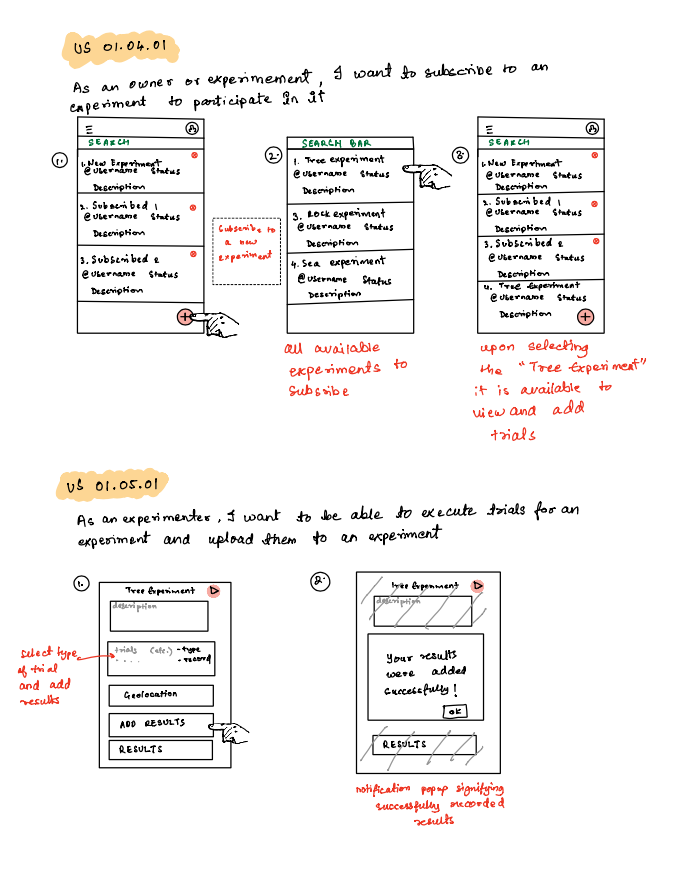 US 01.04.01
As an owner or experimement, I want to subscribe to an
experiment to participate in it
1.
SEARCH
1. New Experiment
@Username Status
Description
2. Subscribed 1
@Username Status
Description
3. Subscribed 2
@Username Status
Description
+
Subscribe to
a new
experiment
2.
SEARCH BAR
1. Tree experiment
@Username Status
Description
3. Rock experiment
@Username Status
Description
4. Sea experiment
@Username Status
Description
all available
experiments to
Subscribe
3.
SEARCH
1. New Experiment
@Username Status
Description
2. Subscribed 1
@Username Status
Description
3. Subscribed 2
@Username Status
Description
4. Tree Experiment
@Username Status
Description
+
upon selecting
the "Tree Experiment"
it is available to
view and add
trials
US 01.05.01
As an experimenter, I want to be able to execute trials for an
experiment and upload them to an experiment
1.
Tree Experiment
description
trials (etc.) - type
- record
Geolocation
ADD RESULTS
RESULTS
Select type
of trial
and add
results
2.
Tree Experiment
description
Your results
were added
successfully!
OK
RESULTS
notification popup signifying
successfully recorded
results